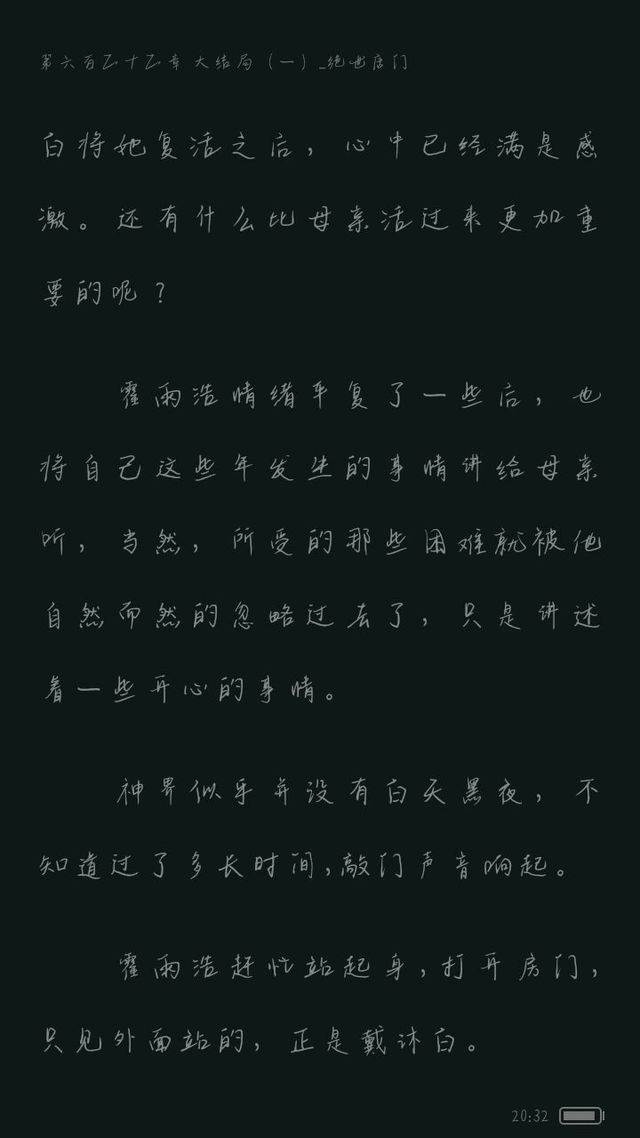 第六百二十二章 大结局（一）_绝世唐门
白将她复活之后，心中已经满是感
激。还有什么比母亲活过来更加重
要的呢？
霍雨浩情绪平复了一些后，也
将自己这些年发生的事情讲给母亲
听，当然，所受的那些困难就被他
自然而然的忽略过去了，只是讲述
着一些开心的事情。
神界似乎并没有白天黑夜，不
知道过了多长时间，敲门声音响起。
霍雨浩赶忙站起身，打开房门，
只见外面站的，正是戴沐白。
20:32